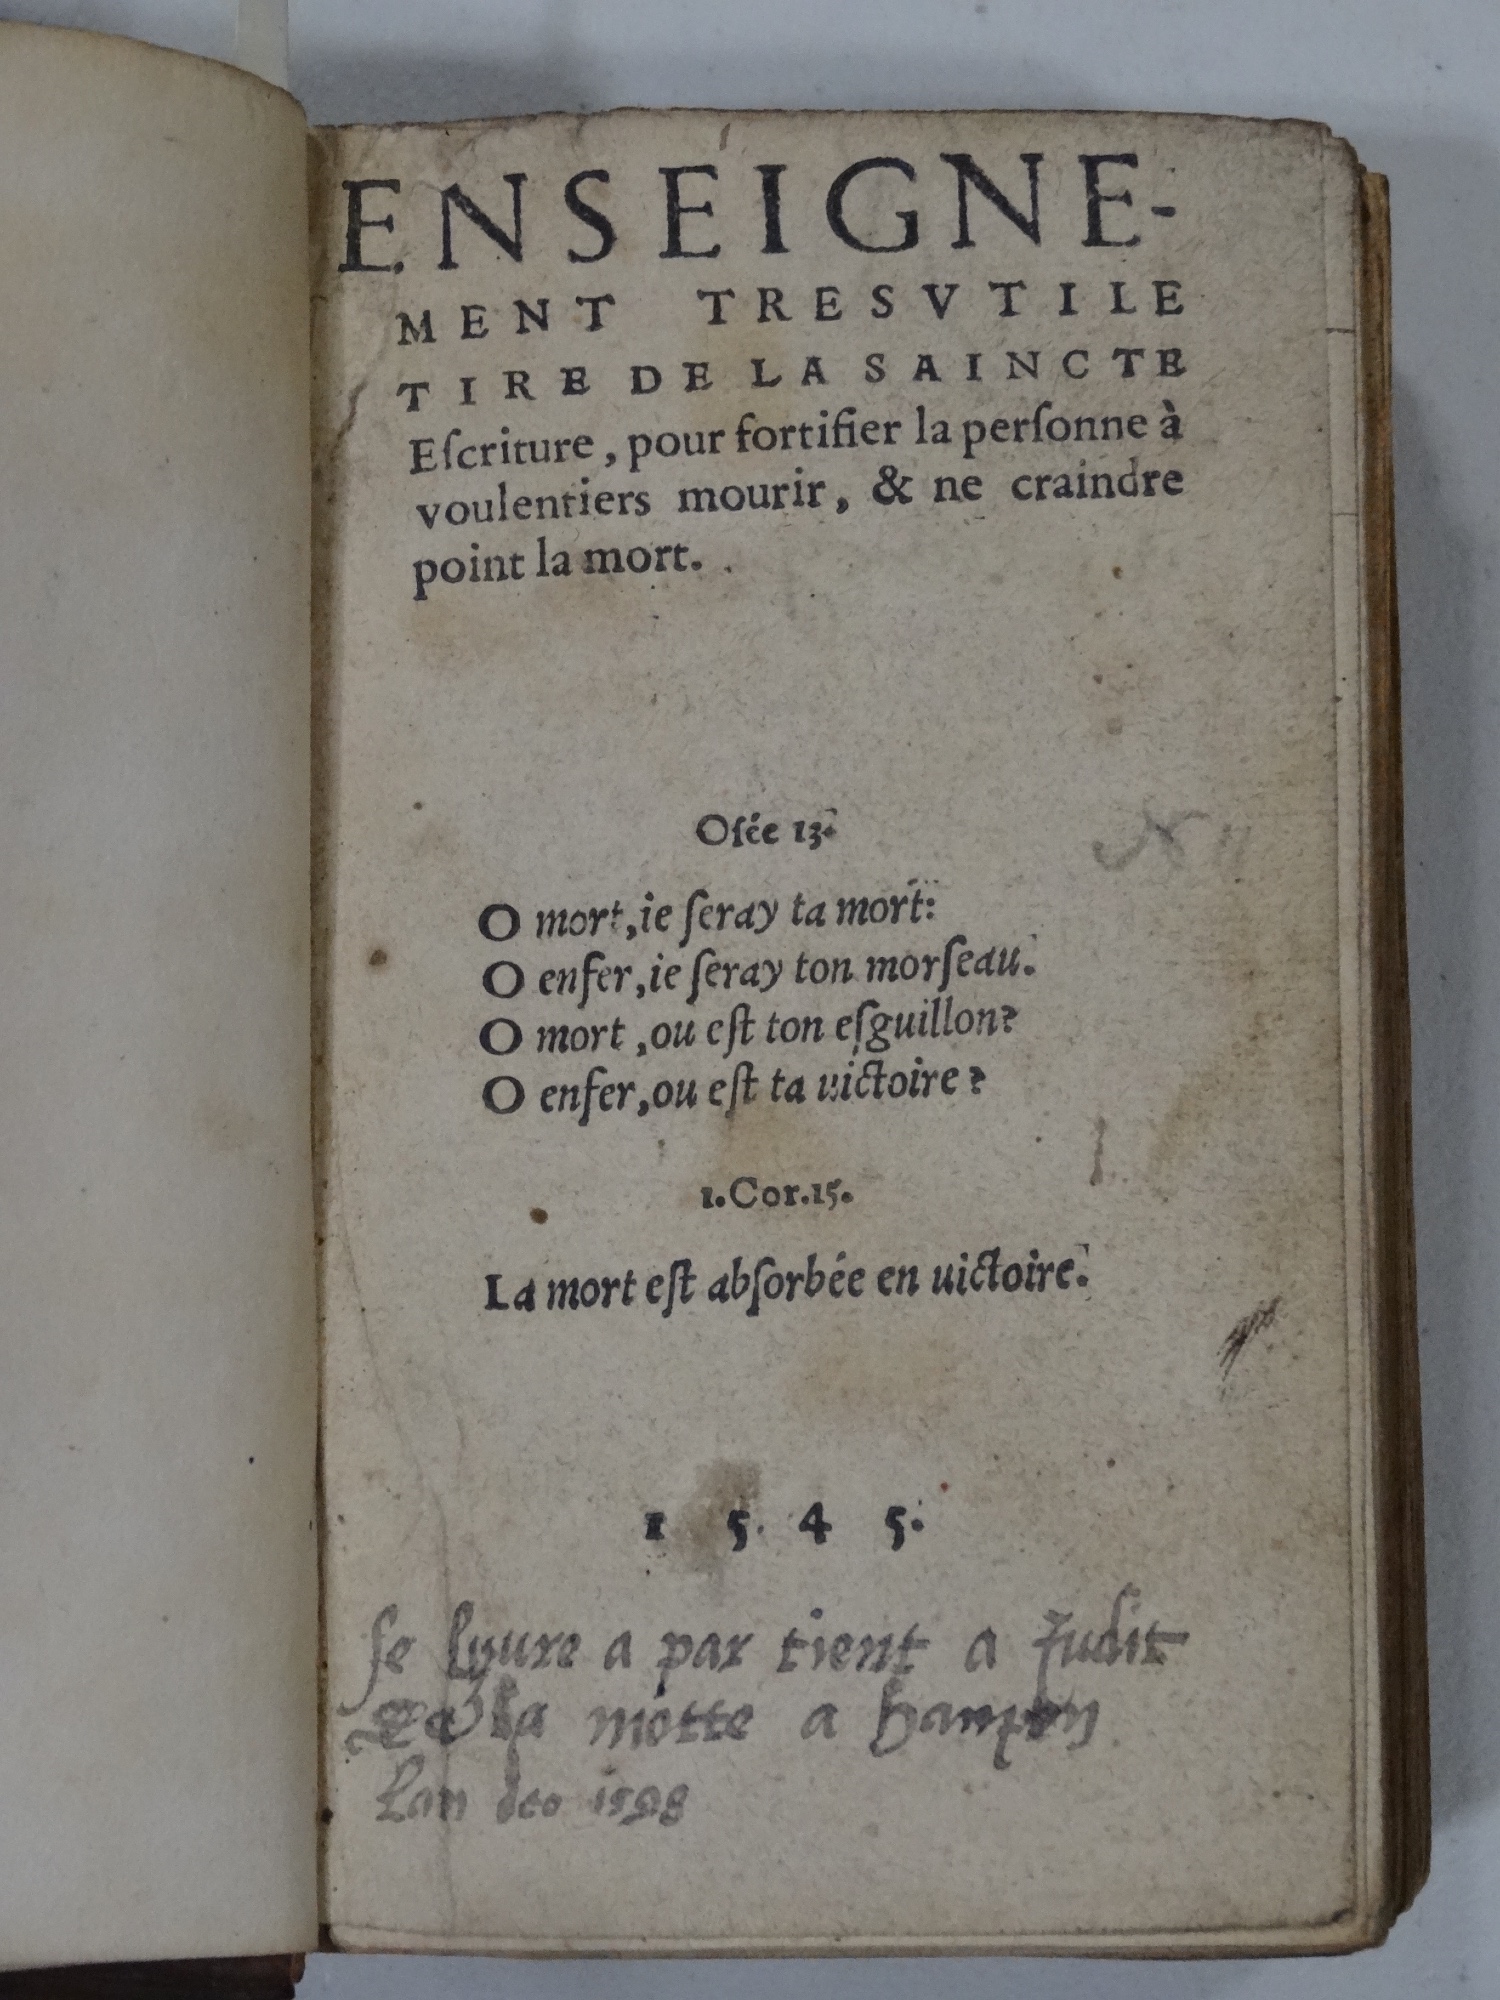 ENSEIGNE-
MENT TRESVTILE
TIRE DE LA SAINCTE
Eſcriture, pour fortifier la perſonne à
voulentiers mourir, & ne craindre
point la mort.
Oſée 13.
O mort, ie ſeray ta mort:
O enfer, ie ſeray ton morſeau.
O mort, ou eſt ton eſguillon?
O enfer, ou eſt ta uictoire?
1. Cor. 15.
La mort eſt abſorbée en uictoire.
1 5 4 5.
ſe lyure a par tient a Judit
De la motte a
Lan 1598